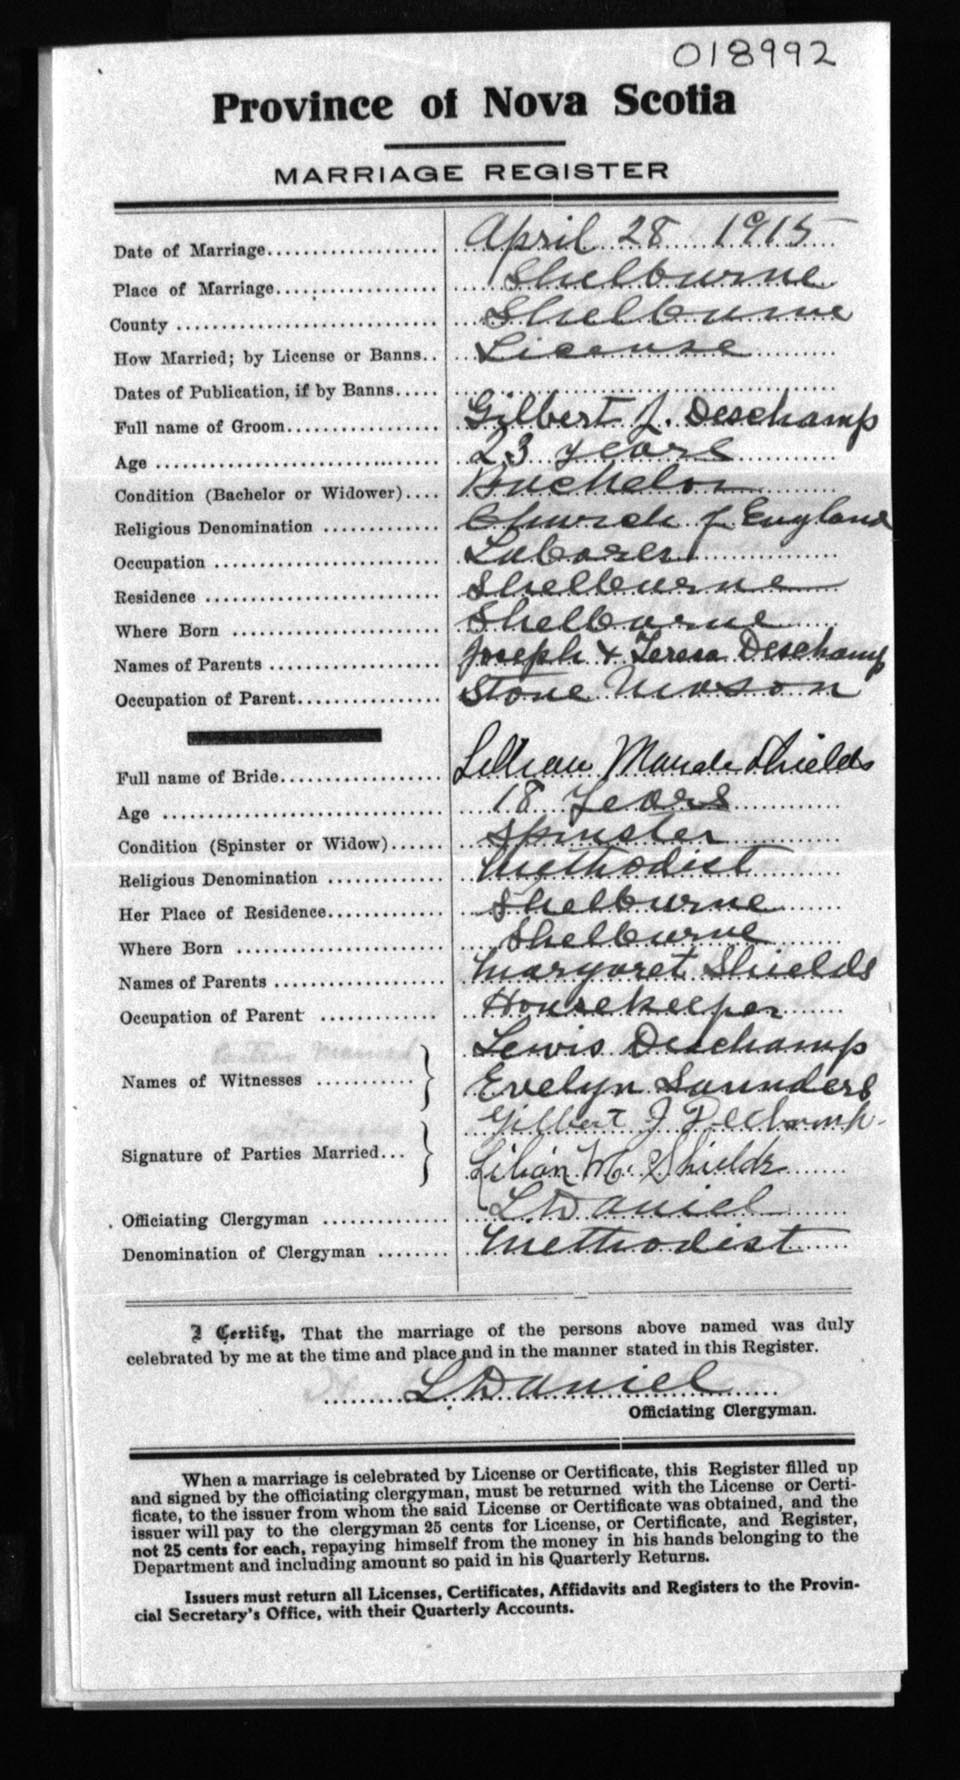 018992
Province of Nova Scotia
MARRIAGE REGISTER
Date of Marriage.................... April 28 1915
Place of Marriage.................... Shelburne
County ............................. Shelburne
How Married; by License or Banns.. License
Dates of Publication, if by Banns.....
Full name of Groom................. Gilbert J. Deschamp
Age ................................ 23 years
Condition (Bachelor or Widower).... Bachelor
Religious Denomination ............. Church of England
Occupation ......................... Laborer
Residence .......................... Shelburne
Where Born ....................... Shelburne
Names of Parents ................... Joseph & Teresa Deschamp
Occupation of Parent................ Stone Mason
Full name of Bride.................. Lillian Maude Shields
Age ............................... 18 Years
Condition (Spinster or Widow)...... Spinster
Religious Denomination ............. Methodist
Her Place of Residence............. Shelburne
Where Born ....................... Shelburne
Names of Parents ................... Margaret Shields
Occupation of Parent ............. Housekeeper
Parties Married
Lewis Deschamp
Names of Witnesses ........... } Evelyn Saunders
witnesses
Gilbert J Deschamp.
Signature of Parties Married... } Lilian M. Shields
Officiating Clergyman .............. L Daniel
Denomination of Clergyman ........ Methodist
I Certify, That the marriage of the persons above named was duly
celebrated by me at the time and place and in the manner stated in this Register.
L. Daniel
Officiating Clergyman.
When a marriage is celebrated by License or Certificate, this Register filled up
and signed by the officiating clergyman, must be returned with the License or Certi-
ficate, to the issuer from whom the said License or Certificate was obtained, and the
issuer will pay to the clergyman 25 cents for License, or Certificate, and Register,
not 25 cents for each, repaying himself from the money in his hands belonging to the
Department and including amount so paid in his Quarterly Returns.
Issuers must return all Licenses, Certificates, Affidavits and Registers to the Provin-
cial Secretary's Office, with their Quarterly Accounts.